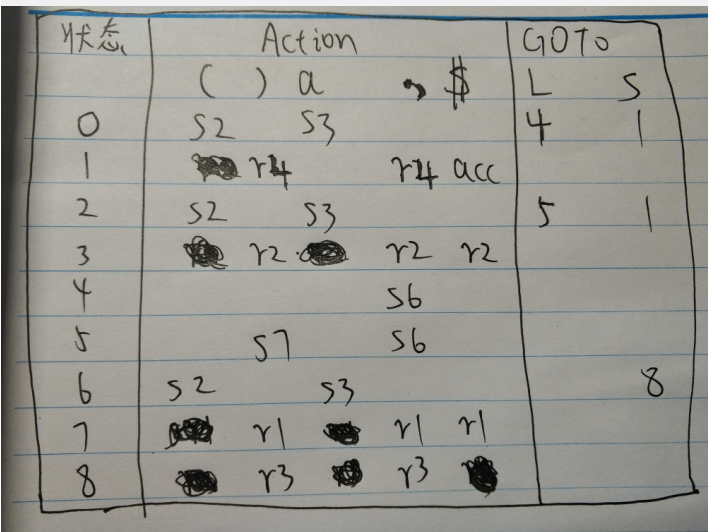 状态 Action GOTO
( ) a , $ L S
0 S2 S3 4 1
1 r4 r4 acc
2 S2 S3 5 1
3 r2 r2 r2
4 S6
5 S7 S6
6 S2 S3 8
7 r1 r1 r1
8 r3 r3